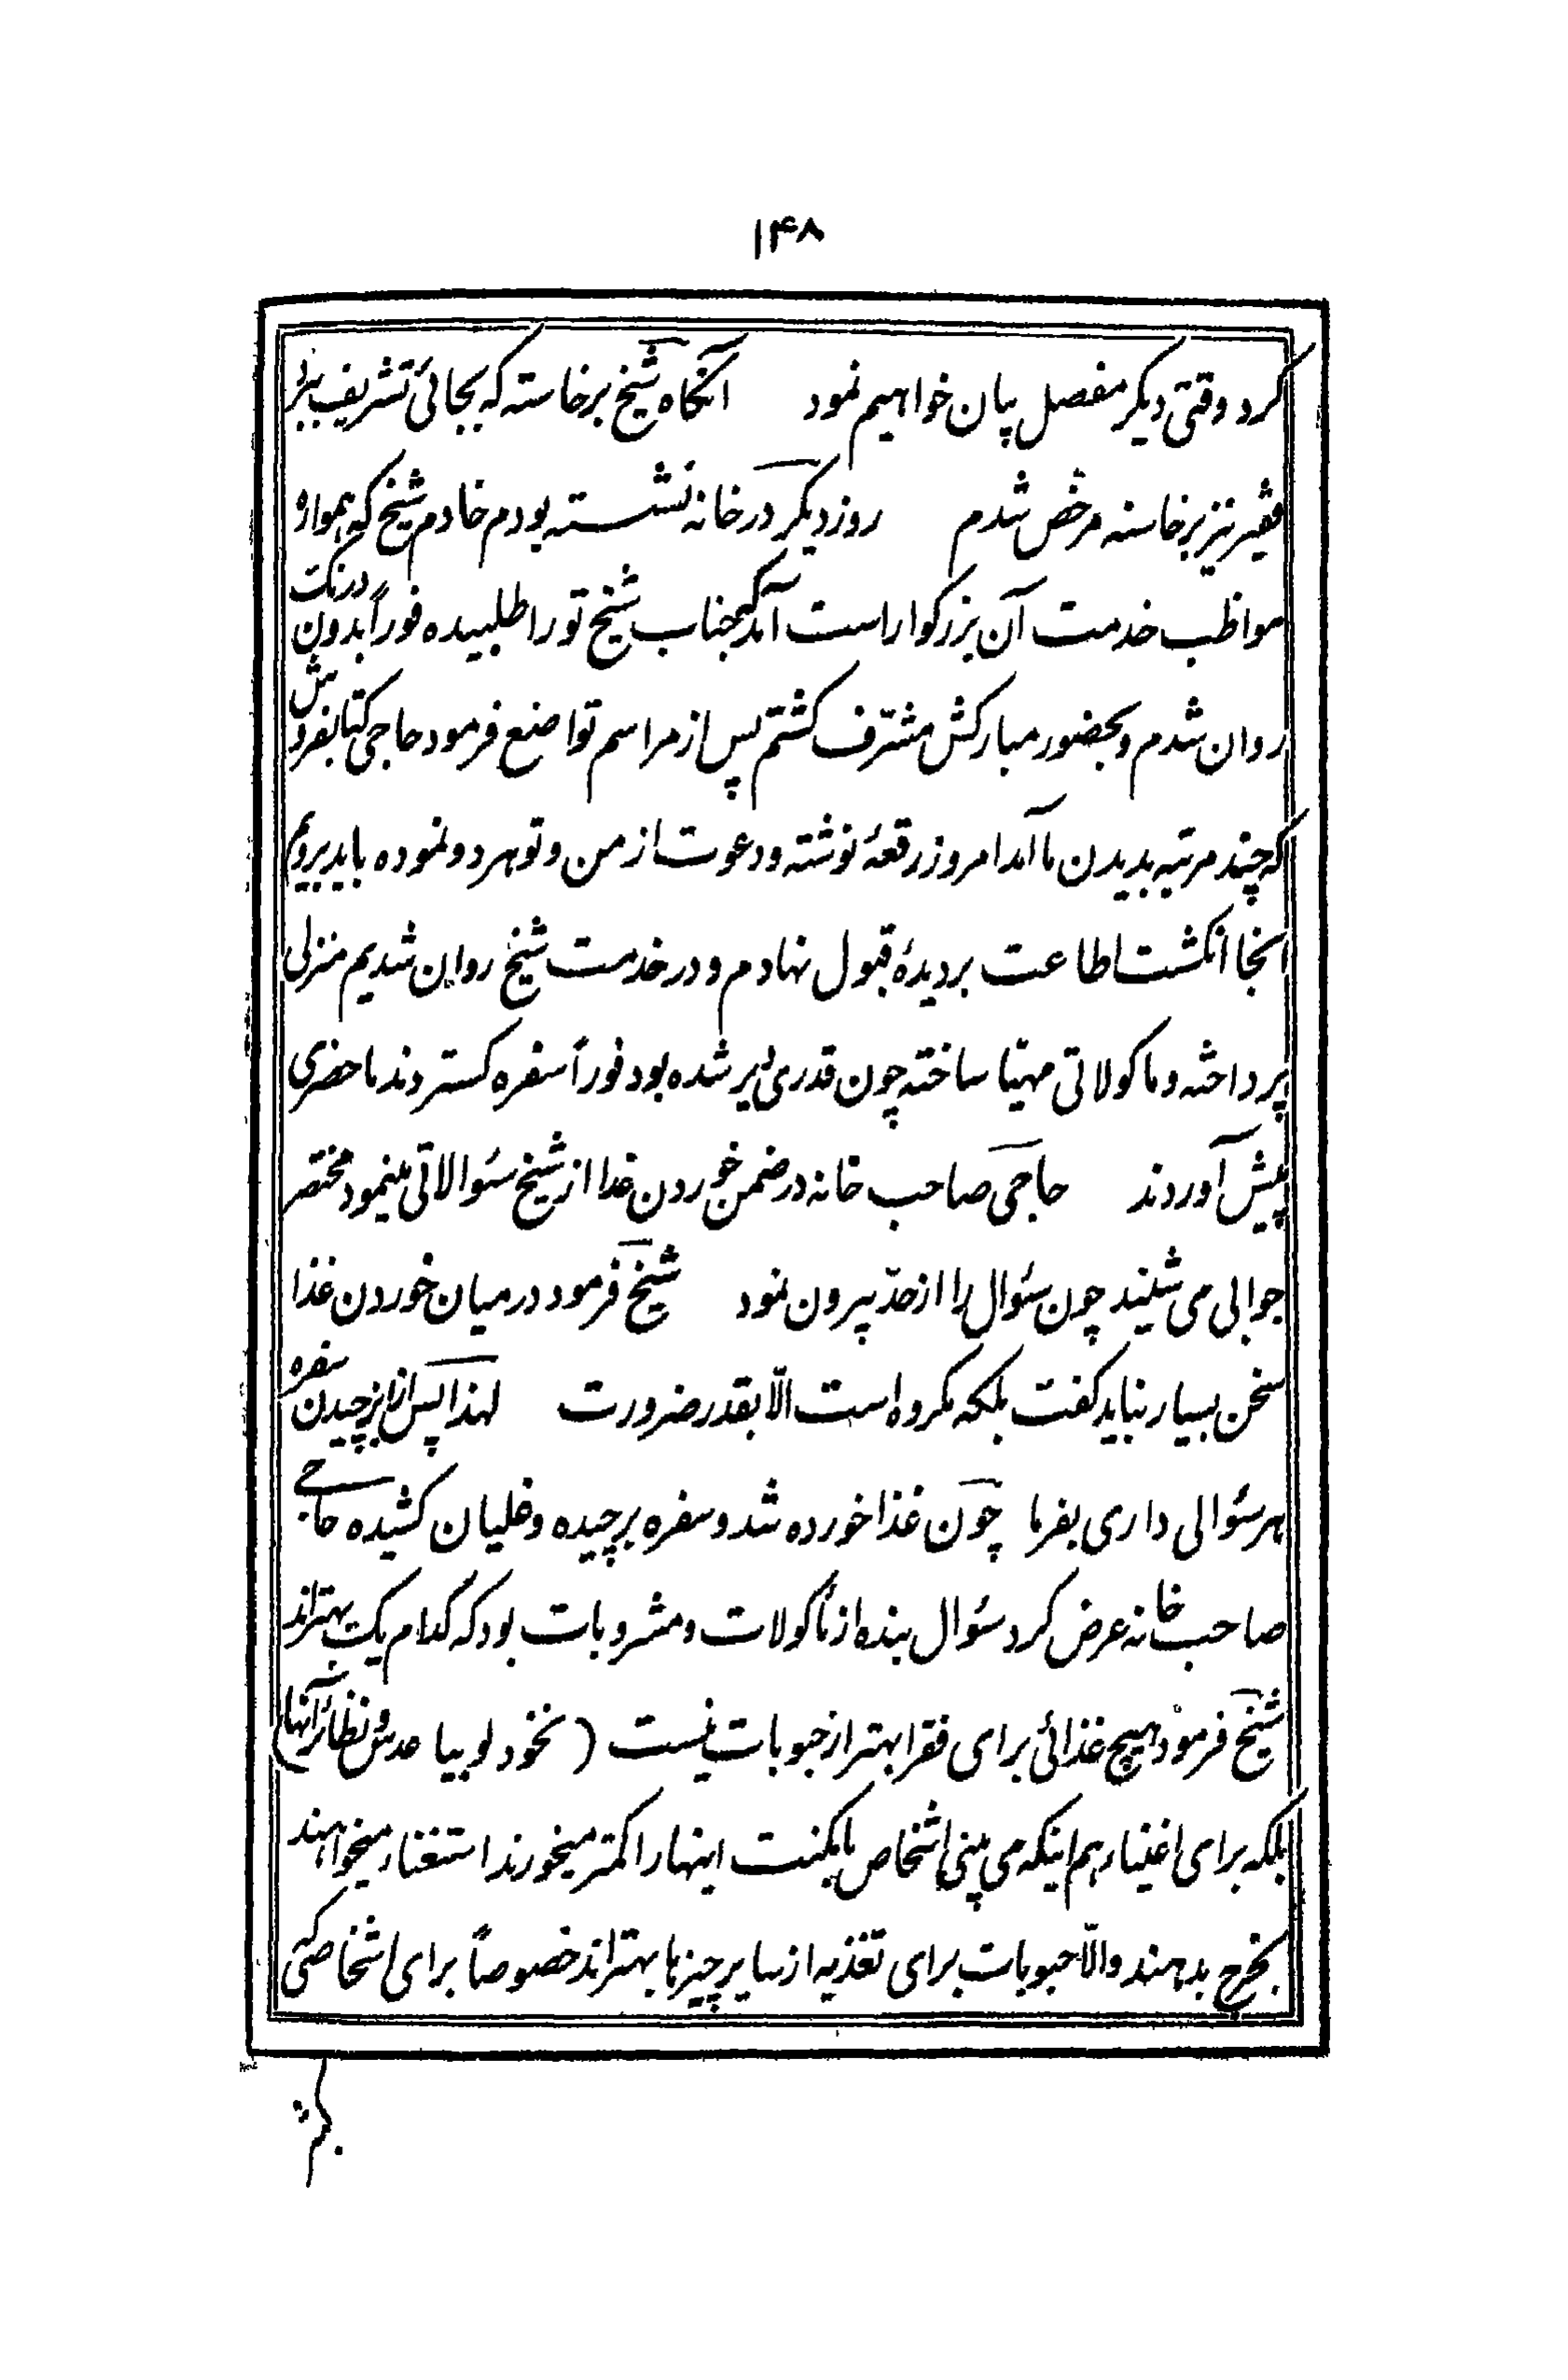 ۱۴۸
کرد وقتی دیگر مفصل بیان خواهیم نمود آنگاه شیخ برخاسته که بجائی تشریف ببرد
فقیر نیز برخاسته مرخص شدم روز دیگر در خانه نشسته بودم خادم شیخ که همواره
مواظب خدمت آن بزرگوار است آمد که جناب شیخ تو را طلبیده فوراً بدون درنگ
روان شدم و بحضور مبارکش مشرّف گشتم پس از مراسم تواضع فرمود حاجی کتابفروش
که چند مرتبه بدیدن ما آمد امروز رقعهٔ نوشته و دعوت از من و تو هر دو نموده باید برویم
آنجا انگشت اطاعت بر دیدهٔ قبول نهادم و در خدمت شیخ روان شدیم منزلی
پرداخته و ماکولاتی مهیّا ساخته چون قدری دیر شده بود فوراً سفره گستردند ماحضری
پیش آوردند حاجی صاحب خانه در ضمن خوردن غذا از شیخ سئوالاتی مینمود مختصر
جوابی می شنید چون سئوال را از حدّ بیرون نمود شیخ فرمود در میان خوردن غذا
سخن بسیار نباید گفت بلکه مکروه است الّا بقدر ضرورت لهذا پس از برچیدن سفره
هر سئوالی داری بفرما چون غذا خورده شد و سفره برچیده و غلیان کشیده حاجی
صاحب خانه عرض کرد سئوال بنده از ماکولات و مشروبات بود که کدام یک بهتراند
شیخ فرمود هیچ غذائی برای فقرا بهتر از حبوبات نیست ( نخود لوبیا عدس و نظائر آنها )
بلکه برای اغنیاء هم اینکه می بینی اشخاص با مکنت اینها را کمتر میخورند استغناء میخواهند
بخرج بدهند والّا حبوبات برای تغذیه از سایر چیزها بهتراند خصوصاً برای اشخاصی که